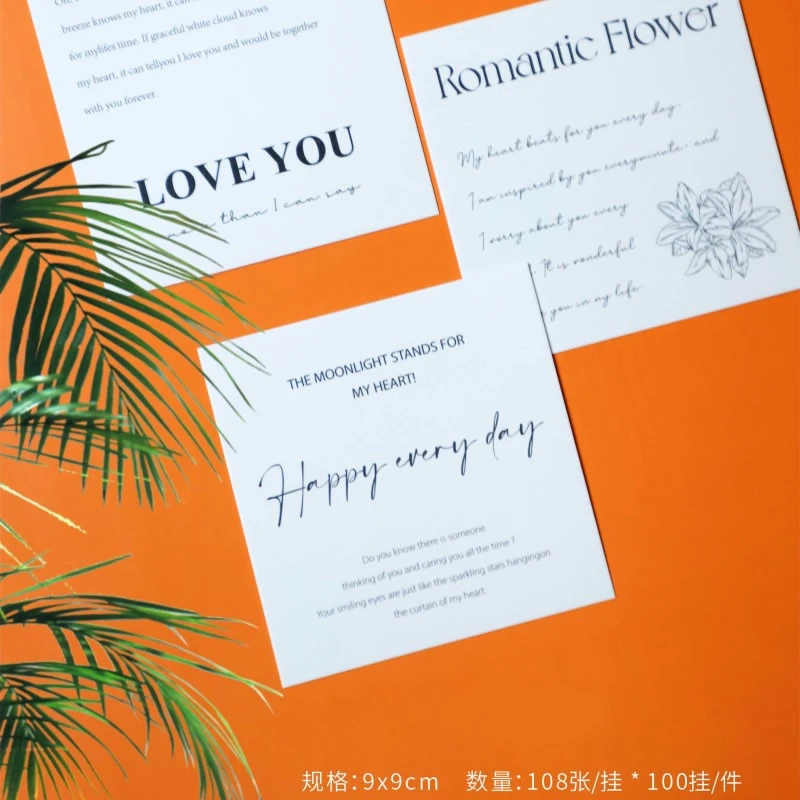 breeze knows my heart, it can
for mylifes time. If graceful white cloud knows
my heart, it can tellyou I love you and would be together
with you forever.
LOVE YOU
than I can say
Romantic Flower
My heart beats for you every day.
I am inspired by you everyminute. and
I worry about you every
It is wonderful
you in my life.
THE MOONLIGHT STANDS FOR
MY HEART!
Happy every day
Do you know there is someone
thinking of you and caring you all the time ?
Your smiling eyes are just like the sparkling stars hangingon
the curtain of my heart.
规格:9x9cm 数量:108张/挂 * 100挂/件